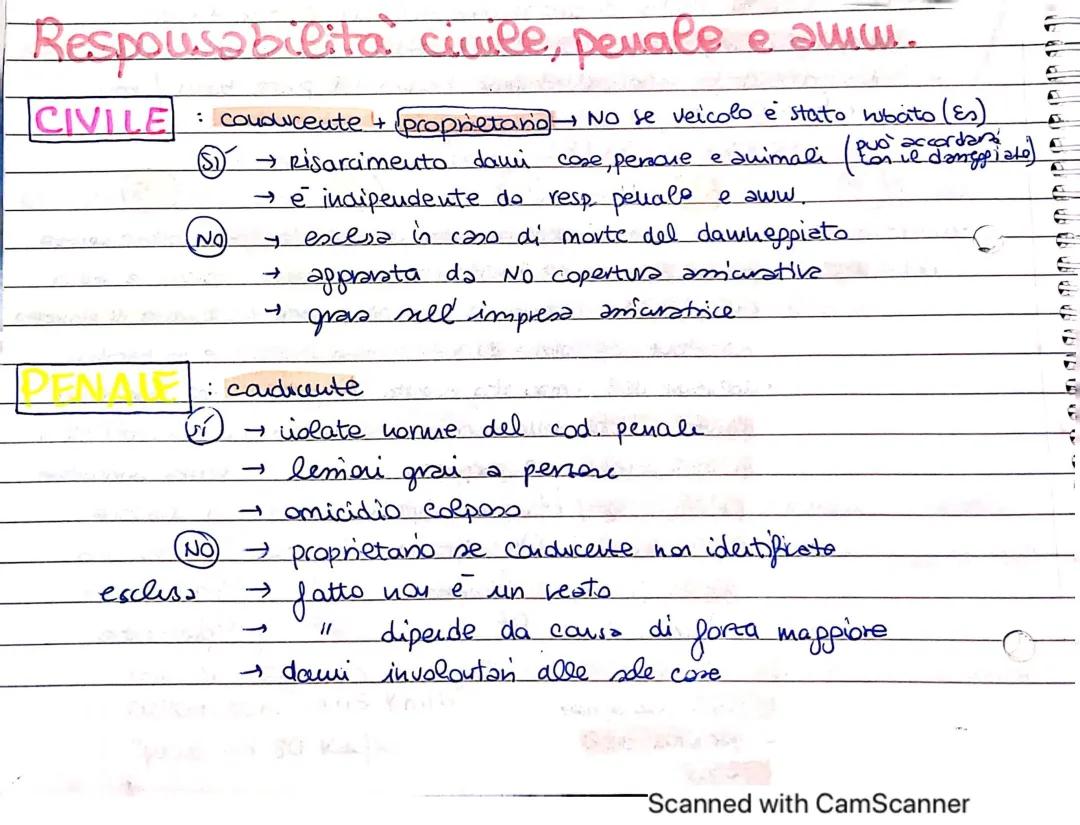 Responsabilità civile, penale e amm.
CIVILE : conducente + proprietario → NO se veicolo è stato rubato (Es)
SÌ → Risarcimento danni cose, persone e animali (può accordarsi con il danneggiato)
→ è indipendente da resp. penale e amm.
NO → esclusa in caso di morte del danneggiato
→ aggravata da NO copertura assicurativa
→ grava sull'impresa assicuratrice
PENALE : conducente
SÌ → violate norme del cod. penale
→ lesioni gravi a persone
→ omicidio colposo
NO → proprietario se conducente non identificato
esclusa → fatto non è un reato
→ " dipende da causa di forza maggiore
→ danni involontari alle sole cose
Scanned with CamScanner